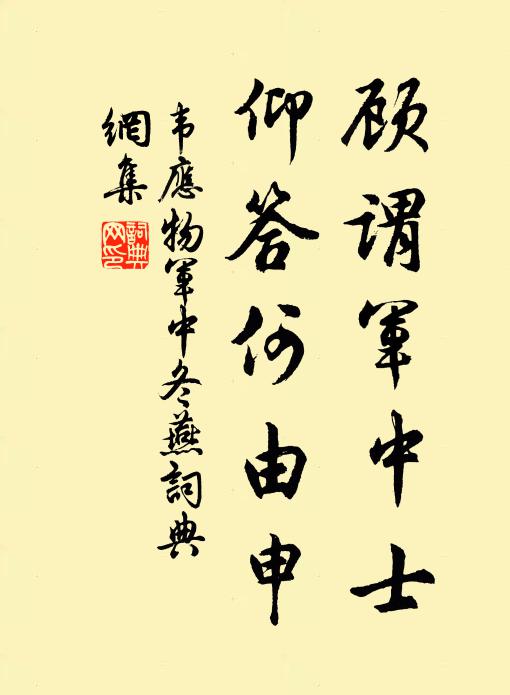 顾谓军中士
仰答何由申
韦应物军中冬燕词典
網集
詞典
网印